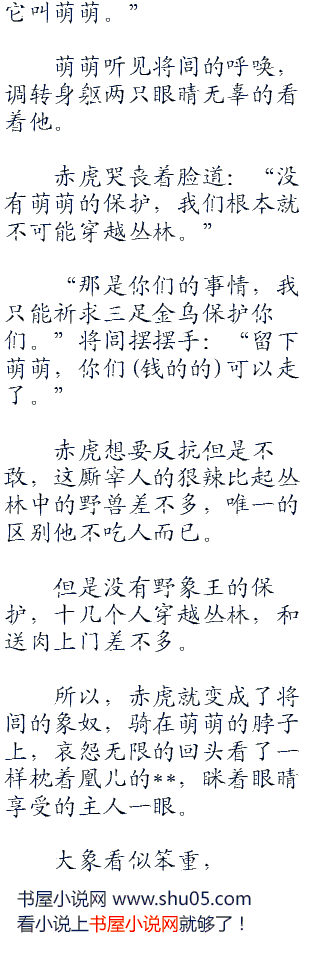 它叫萌萌。”
萌萌听见将闾的呼唤，
调转身躯两只眼睛无辜的看
着他。
赤虎哭丧着脸道：“没
有萌萌的保护，我们根本就
不可能穿越丛林。”
“那是你们的事情，我
只能祈求三足金乌保护你
们。”将闾摆摆手：“留下
萌萌，你们(钱的的)可以走
了。”
赤虎想要反抗但是不
敢，这厮宰人的狠辣比起丛
林中的野兽差不多，唯一的
区别他不吃人而已。
但是没有野象王的保
护，十几个人穿越丛林，和
送肉上门差不多。
所以，赤虎就变成了将
闾的象奴，骑在萌萌的脖子
上，哀怨无限的回头看了一
样枕着凰儿的**，眯着眼睛
享受的主人一眼。
大象看似笨重，
书屋小说网 www.shu05.com
看小说上书屋小说网就够了！